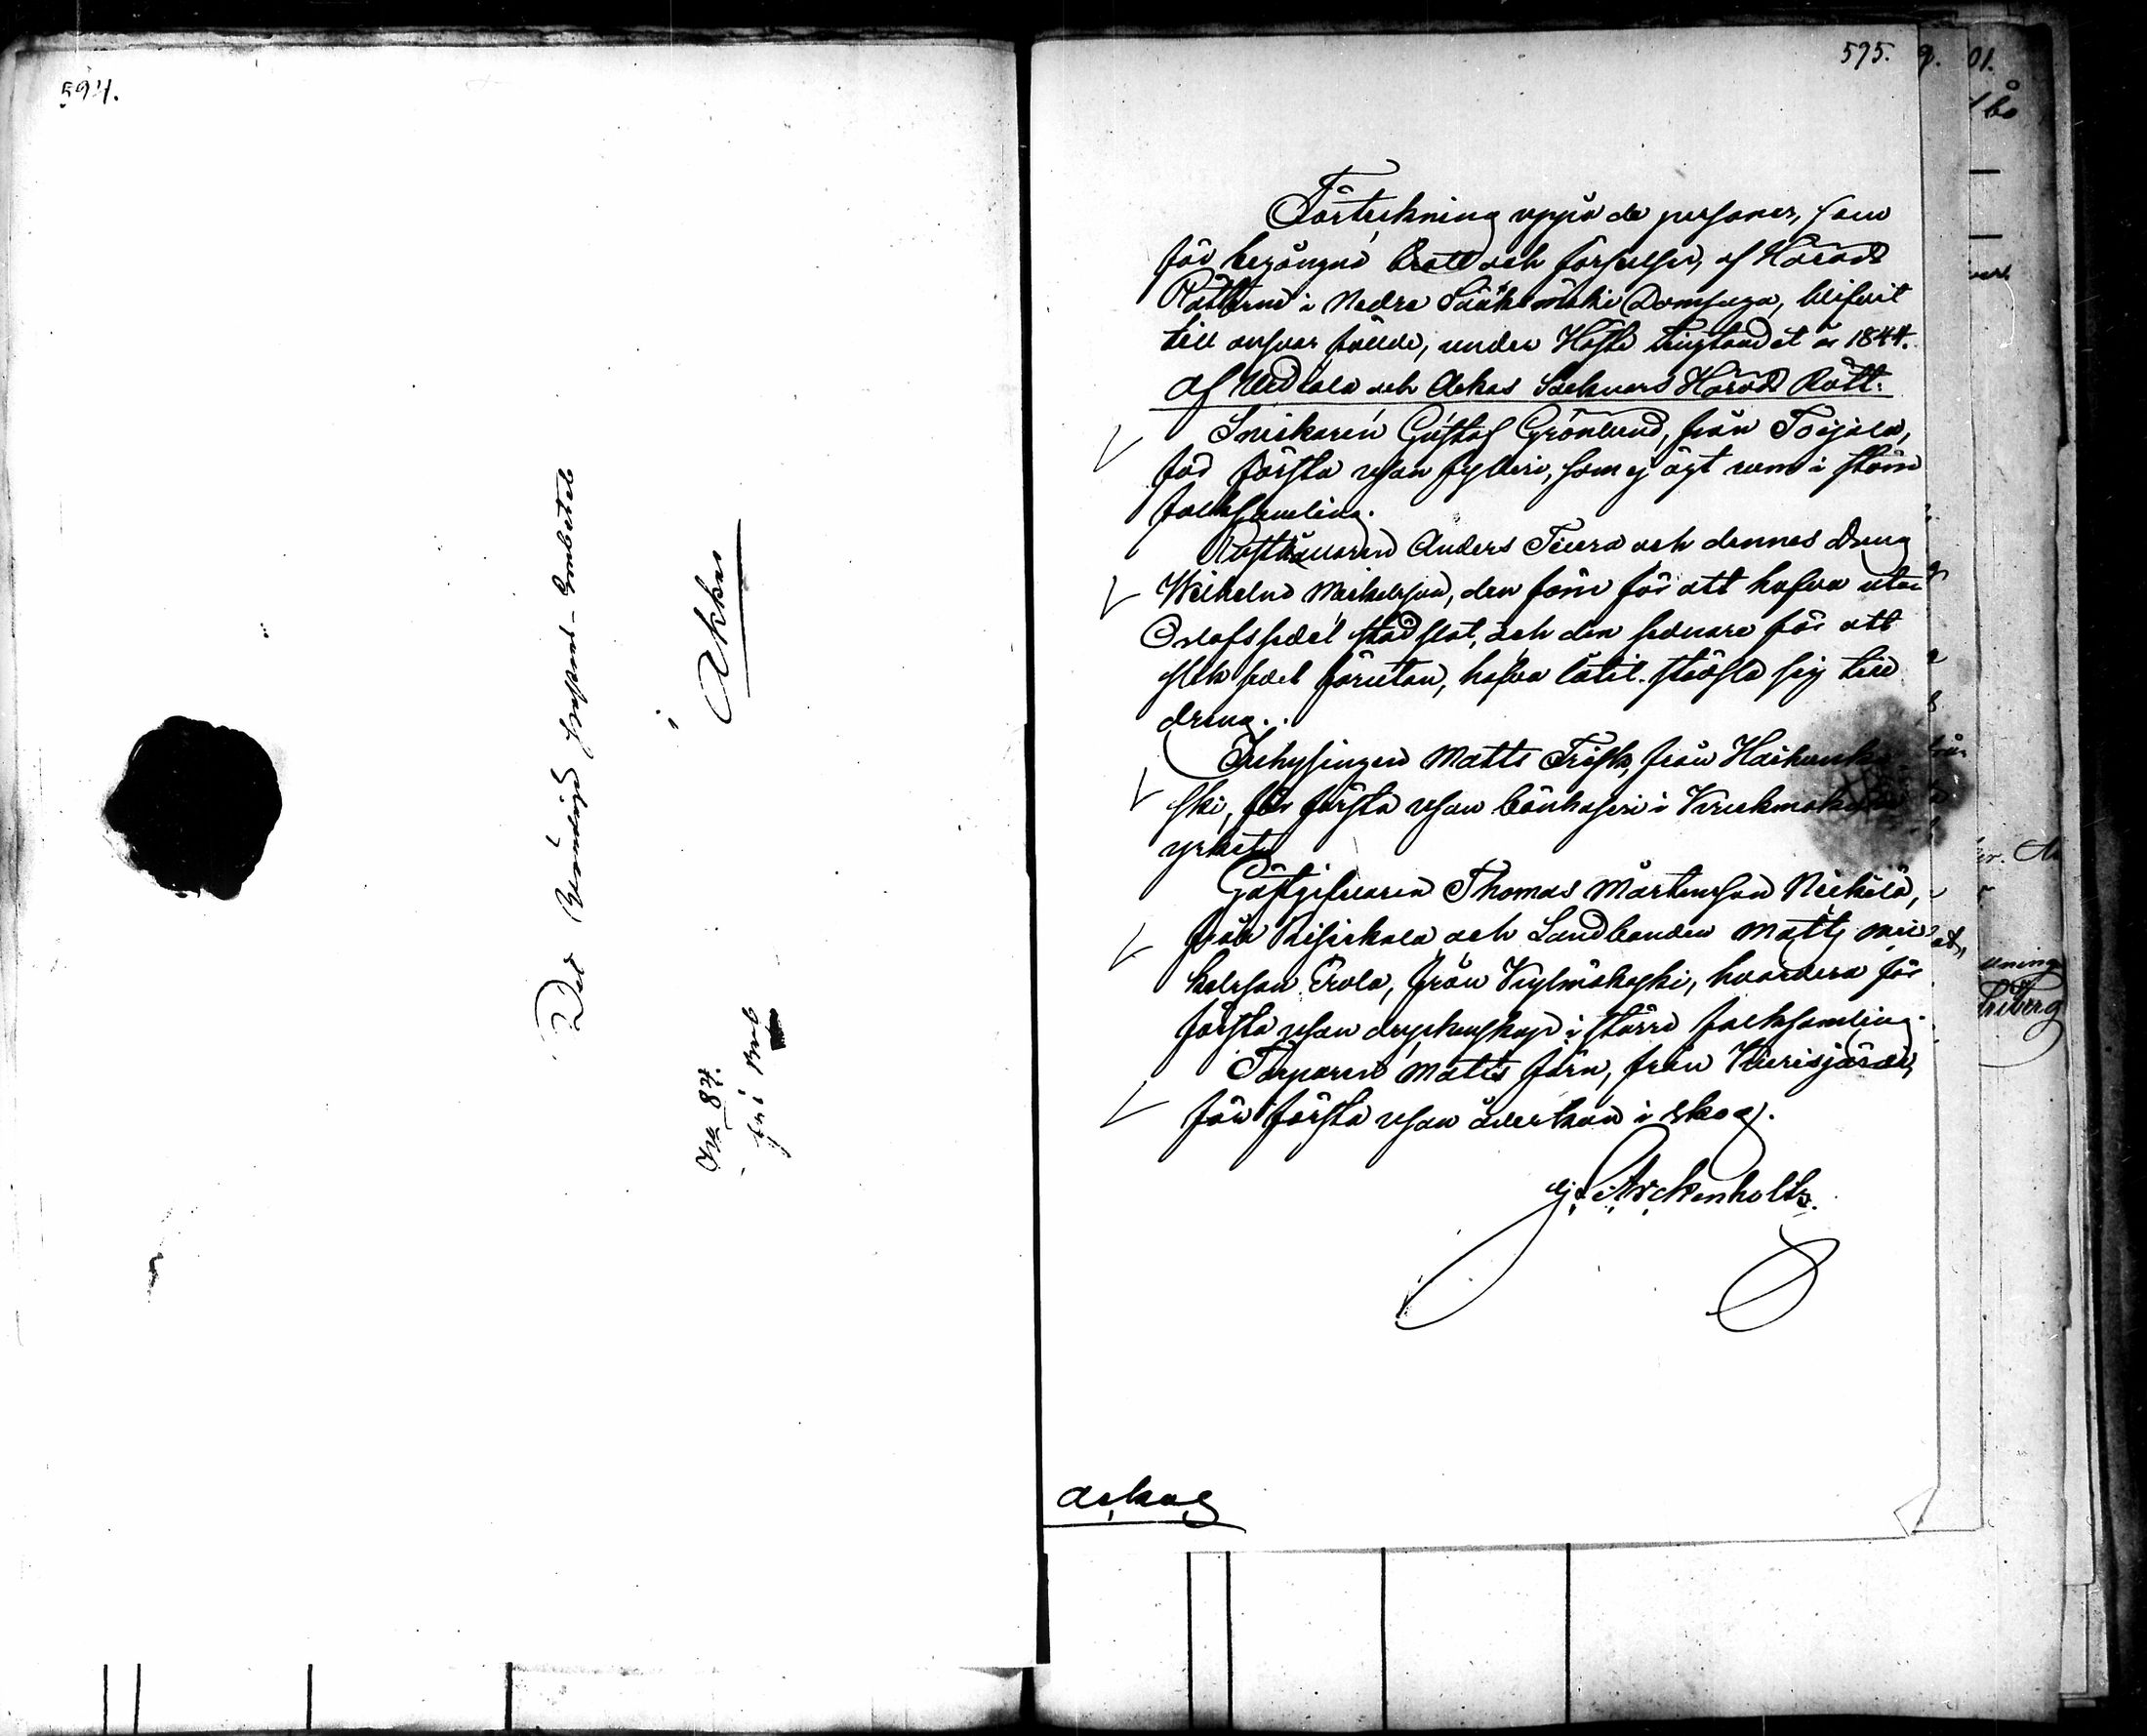 594.
Det Vördiga Pastors-Embetet
i
Akkas
No 84.
fri bref
595.
Förteckning uppå de personer, som
för begångna Brott och förseelser, af Härads
Rätterne i Nedra Sääksmäki Domsaga, blifvit
till ansvar fällde, under Höste tingtandet år 1844.
Af Urdiala och Ackas Socknars Härads Rätt.
Snickaren Gustaf Grönlund, från Toijala,
för första resan fylleri, som ej ägt rum i större
folksamling.
Rusthållaren Anders Teura och dennes Dreng
Wilhelm Mickelsson, den förre för att hafva utan
Orlofssedel städslat, och den sednare för att
slik sedel förutan, hafva låtit städsla sig till
dreng.
Inhysingen Matts Frisk, från Haihunko-
ski, för första resan bönhaseri i
yrket.
Gästgifvaren Thomas Mårtensson Neikilä,
från och Landbonden Matts Mic-
kelsson Erola, från Kylmäkoski, hvardera för
första resan dryckenskap i större folksamling.
Torparen Matts Järn, från Kurisjärvi,
för första resan åverkan i skog.
G. Arckenholtz.
Ackas